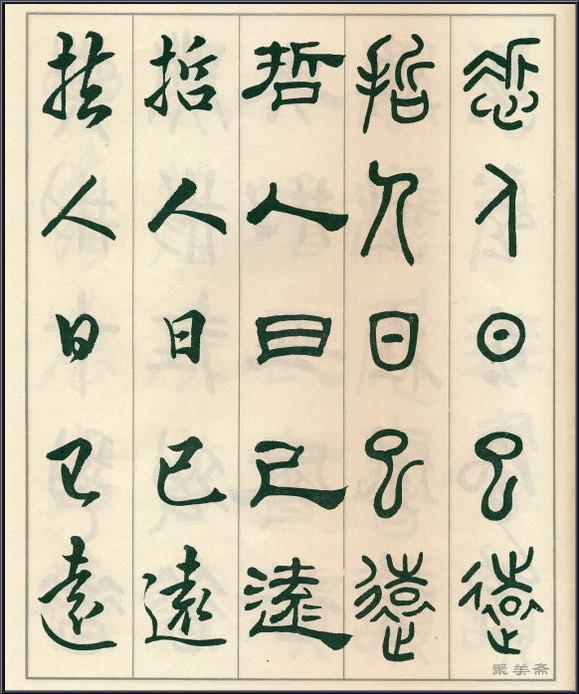 悊人日已遠
哲人日已遠
哲人日已遠
哲人日已遠
哲人日已遠
聚美斋